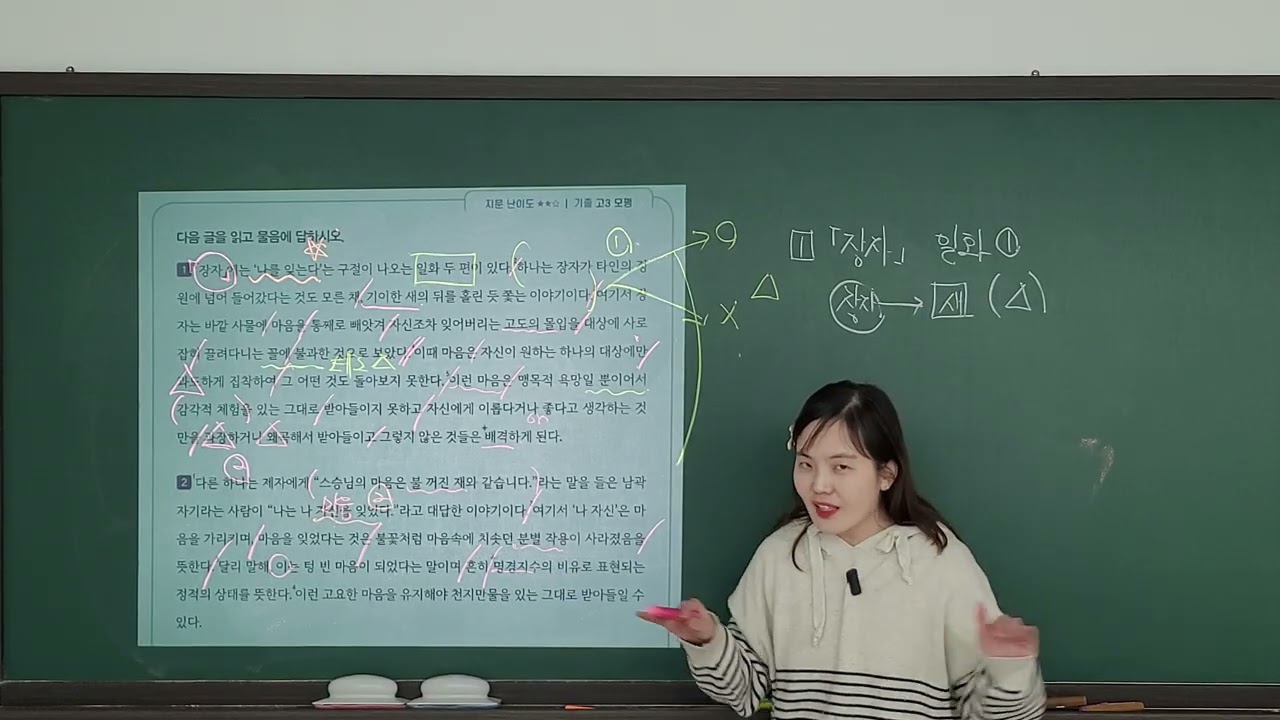 지문 난이도 ★★☆ | 기출 고3 모평
다음 글을 읽고 물음에 답하시오.
1 「장자」에는 ‘나를 잊는다’는 구절이 나오는 일화 두 편이 있다. 하나는 장자가 타인의 정
원에 넘어 들어갔다는 것도 모른 채, 기이한 새의 뒤를 홀린 듯 쫓는 이야기이다. 여기서 장
자는 바깥 사물에 마음을 통째로 빼앗겨 자신조차 잊어버리는 고도의 몰입을 대상에 사로
잡혀 끌려다니는 꼴에 불과한 것으로 보았다. 이때 마음은 자신이 원하는 하나의 대상에만
과도하게 집착하여 그 어떤 것도 돌아보지 못한다. 이런 마음은 맹목적 욕망일 뿐이어서
감각적 체험을 있는 그대로 받아들이지 못하고 자신에게 이롭다거나 좋다고 생각하는 것
만을 과장하거나 왜곡해서 받아들이고 그렇지 않은 것들은 배격하게 된다.
2 다른 하나는 제자에게 “스승님의 마음은 불 꺼진 재와 같습니다.”라는 말을 들은 남곽
자기라는 사람이 “나는 나 자신을 잊었다.”라고 대답한 이야기이다. 여기서 ‘나 자신’은 마
음을 가리키며, 마음을 잊었다는 것은 불꽃처럼 마음속에 치솟던 분별 작용이 사라졌음을
뜻한다. 달리 말해, 이는 텅 빈 마음이 되었다는 말이며 흔히 명경지수의 비유로 표현되는
정적의 상태를 뜻한다. 이런 고요한 마음을 유지해야 천지만물을 있는 그대로 받아들일 수
있다.
① O
X △
②
마음 ②
1 「장자」 일화 ①
장자 → 새 (△)